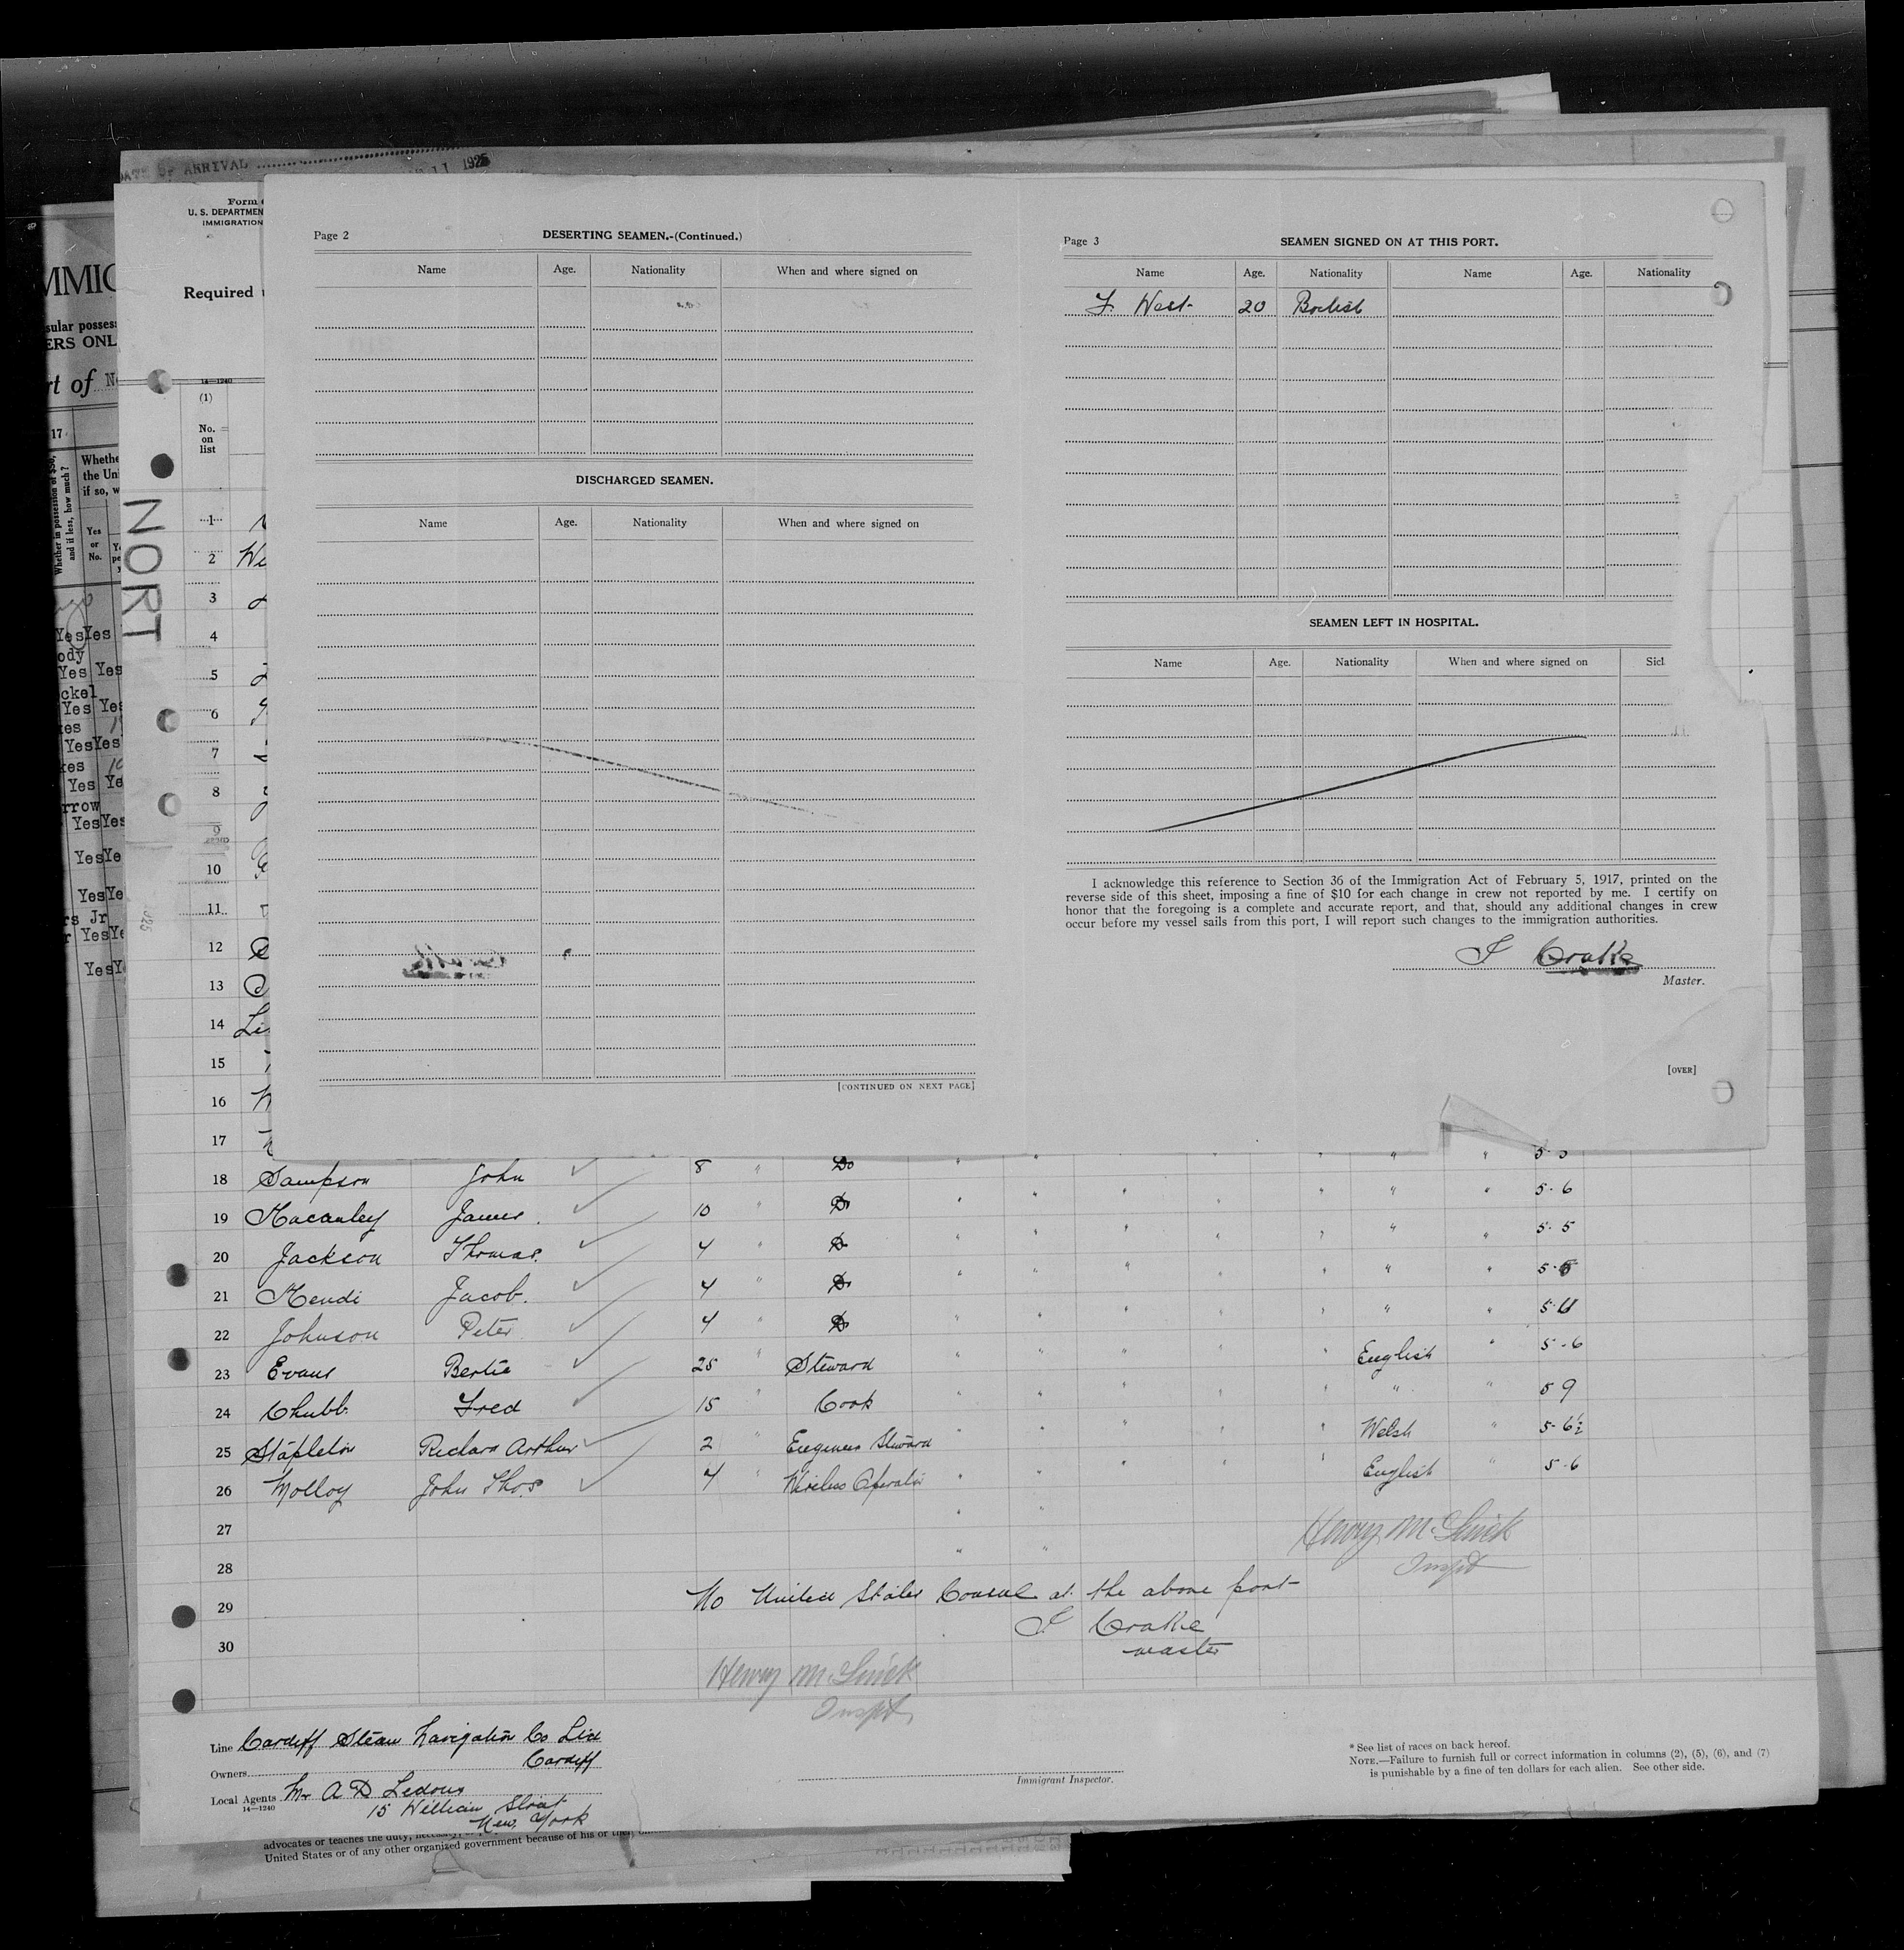 DATE OF ARRIVAL 11 1925
Form
U. S. DEPARTMEN
IMMIGRATION
MMIG
Required
sular posses
ERS ONL
rt of N
14—1240
(1)
No.
on
list
17
Whether in possession of $50,
and if less, how much?
Whethe
the Uni
if so, w
Yes
or
No.
NORT
YesYes
ody
Yes Yes
ckel
Yes Yes
kes
YesYes
kes
Yes Ye
rrow
YesYes
YesYe
YesYe
rs Jr
r YesYe
YesY
Page 2
DESERTING SEAMEN.-(Continued.)
Name Age. Nationality When and where signed on
DISCHARGED SEAMEN.
Name Age. Nationality When and where signed on
[CONTINUED ON NEXT PAGE]
Page 3
SEAMEN SIGNED ON AT THIS PORT.
Name Age. Nationality Name Age. Nationality
F. West 20 British
SEAMEN LEFT IN HOSPITAL.
Name Age. Nationality When and where signed on Sick
I acknowledge this reference to Section 36 of the Immigration Act of February 5, 1917, printed on the
reverse side of this sheet, imposing a fine of $10 for each change in crew not reported by me. I certify on
honor that the foregoing is a complete and accurate report, and that, should any additional changes in crew
occur before my vessel sails from this port, I will report such changes to the immigration authorities.
J Crake
Master.
[OVER]
1
2 We
3
4
5
6
7
8
9
10
11
12
13
14 Li
15
16
17
18 Sampson John 8 " Do " " " " "
19 Macauley James 10 " Do " " " " " " " 5-6
20 Jackson Thomas 4 " Do " " " " " " " 5-5
21 Mendi Jacob 4 " Do " " " " " " "
22 Johnson Peter 4 " Do " " " " " " "
23 Evans Bertie 25 " Steward " " " " " English " 5-6
24 Chubb Fred 15 " Cook " " " " " " " 5 9
25 Stapleton Richard Arthur 2 " Engineers Steward " " " " " Welsh " 5-6½
26 Molloy John Thos 4 " Wireless Operator " " " " " English " 5-6
27
28
29
30
Henry M.
Inspt
No United States Consul at the above port
J Crake
master
Henry M.
Inspt
Line Cardiff Steam Navigation Co Ltd
Owners Cardiff
Local Agents Mr A D Ledoux
14—1240
15 William Street
New York
Immigrant Inspector.
* See list of races on back hereof.
NOTE.—Failure to furnish full or correct information in columns (2), (5), (6), and (7)
is punishable by a fine of ten dollars for each alien. See other side.
advocates or teaches the duty, necessity,
United States or of any other organized government because of his or their